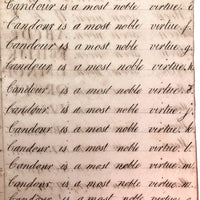 Candour is a most noble virtue. e.
Candour is a most noble virtue. f.
Candour is a most noble virtue. g.
Candour is a most noble virtue. h.
Candour is a most noble virtue.
Candour is a most noble virtue. j.
Candour is a most noble virtue. k.
Candour is a most noble virtue. l.
Candour is a most noble virtue. m.
Candour is a most noble virtue.